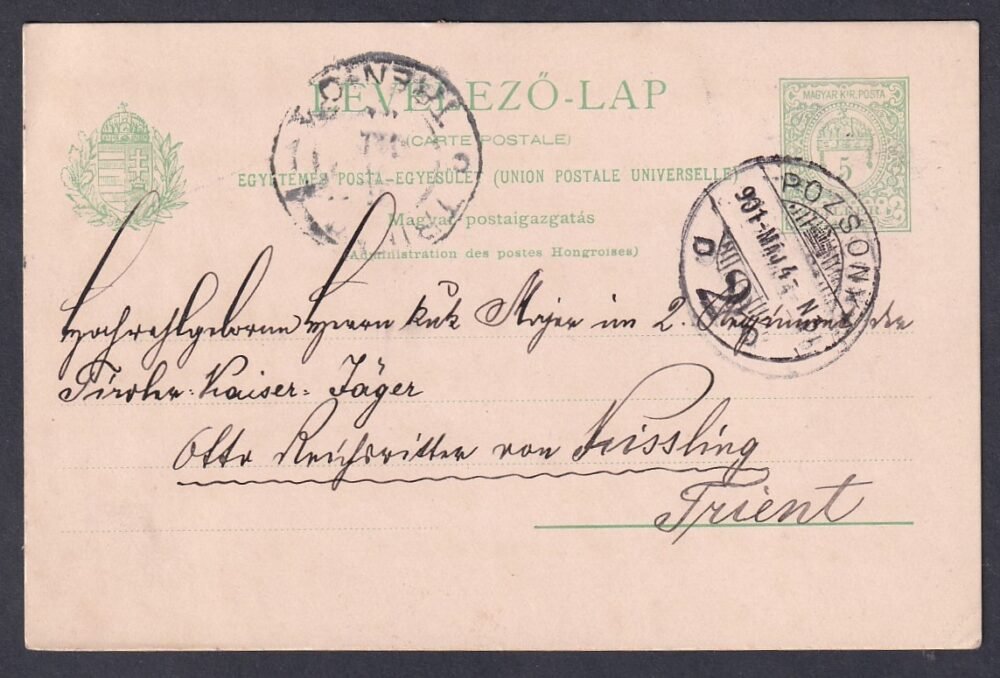 LEVELEZŐ-LAP
(CARTE POSTALE)
EGYETEMES POSTA-EGYESÜLET (UNION POSTALE UNIVERSELLE)
Magyar postaigazgatás
(Administration des postes Hongroises)
MAGYAR KIR. POSTA
5
TRIENT
TRENTO
POZSONY
901-MÁJ.4
Hochwohlgeboren Herrn kuk Major im 2. Regiment der
Tiroler-Kaiser-Jäger
Otto Reichsritter von
Trient